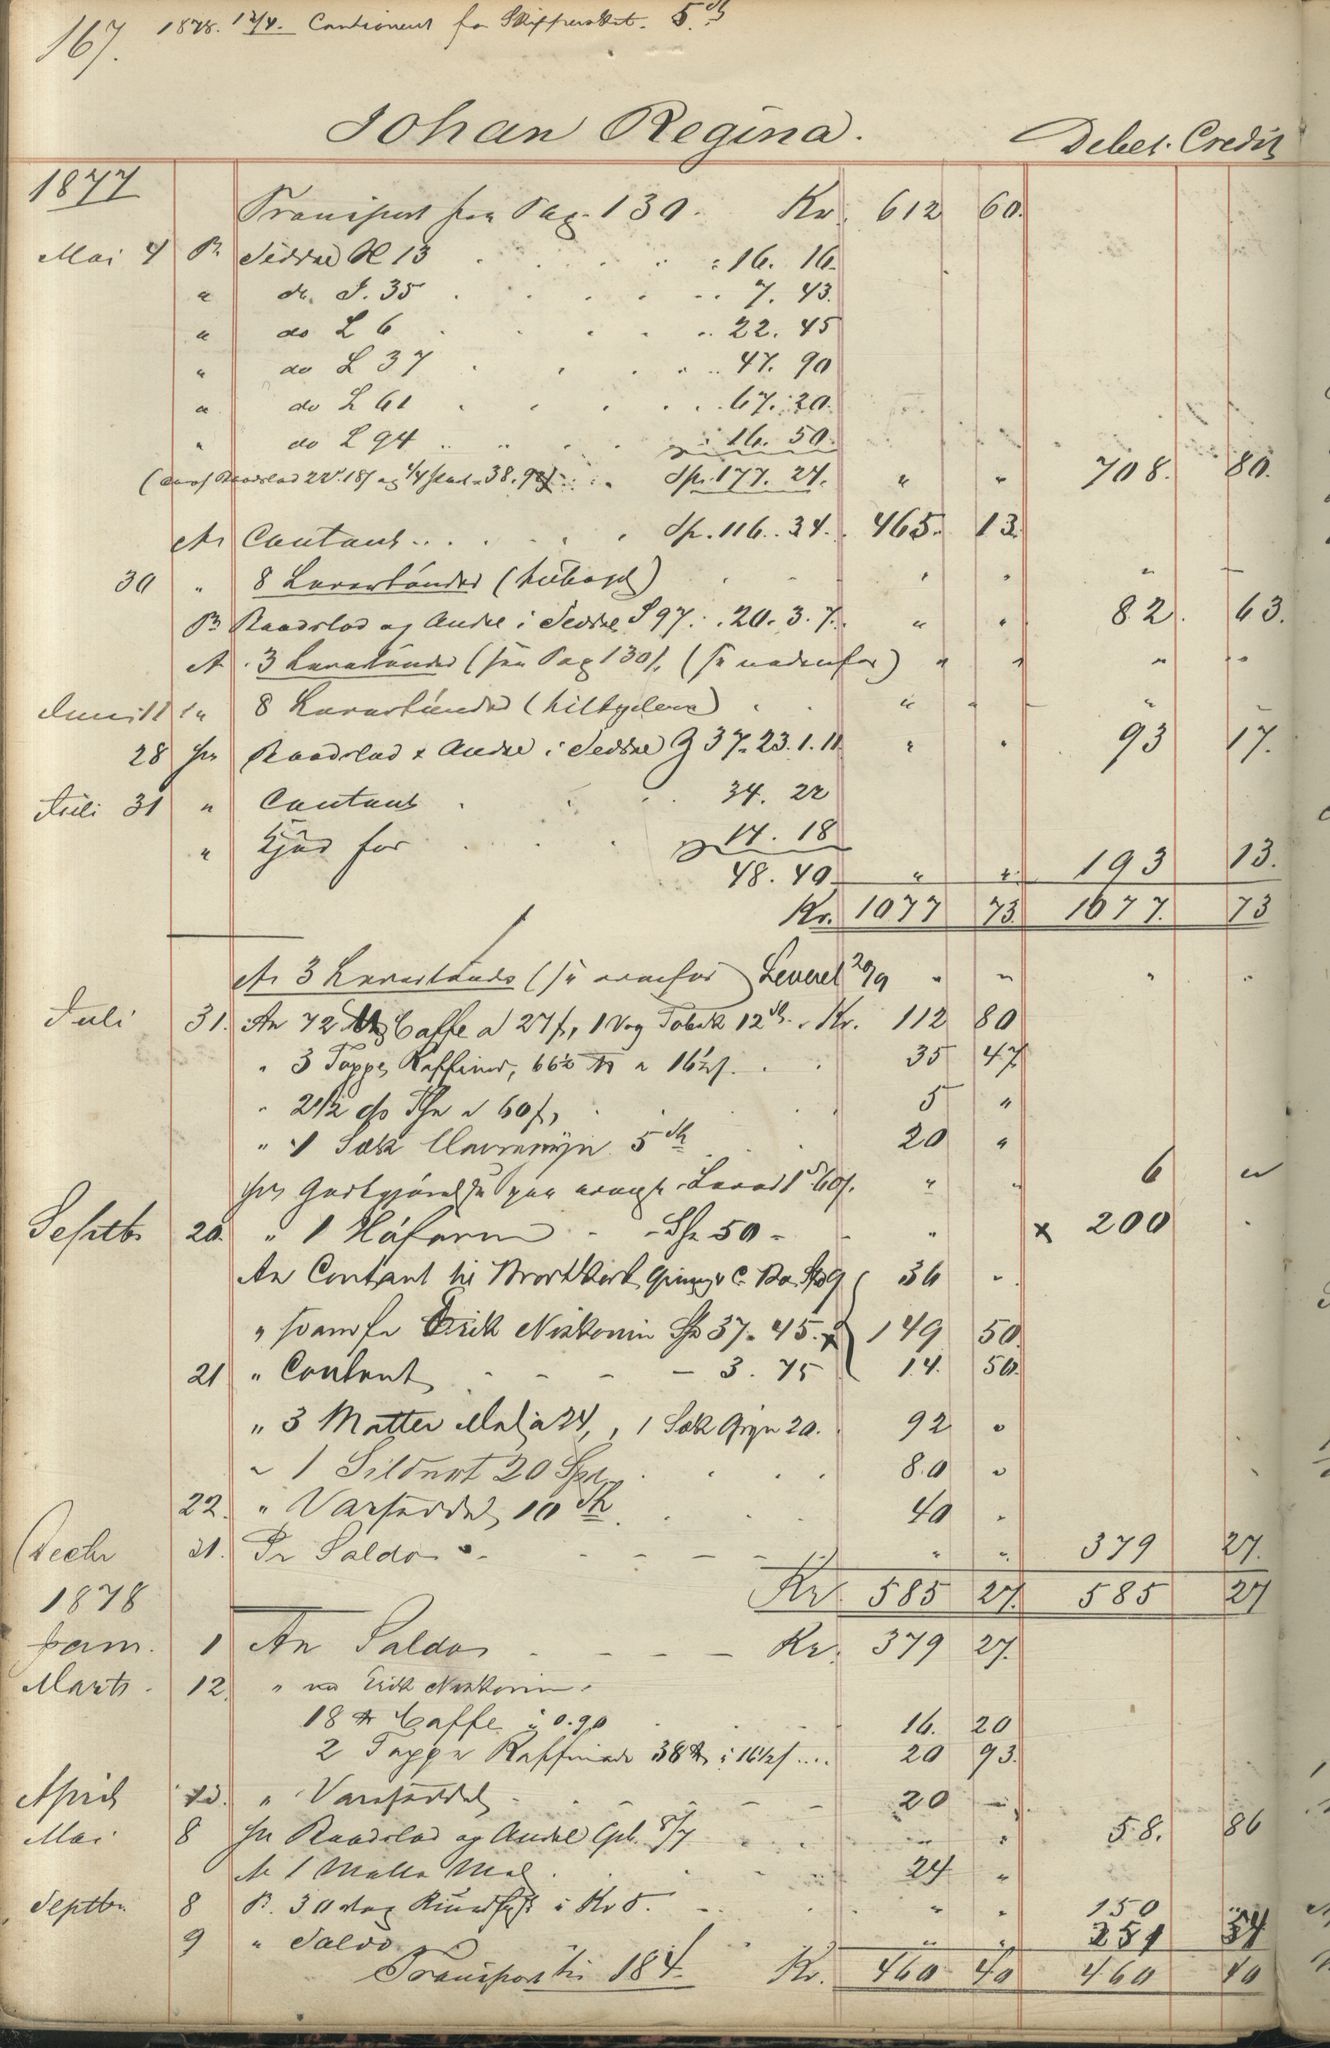 167. 1878. 12/4. Cautionent for Skipperskat. 5. d
Johan Regina. Debet. Credit
1877
Transport fra Pag. 130. Kr. 612 60.
Mai 4 Pr Seddel H 13 16. 16.
" do. J. 35 7. 43.
" do L 6 22. 45
" do L 37 47. 90
" do L 61 67. 20.
" do L 94 16. 50.
Sp. 177. 24. " " 708. 80.
An Contant Sp. 116. 34. 465. 13.
30 " 8 Levertönder
Pr Raadslad og Andel i Seddel S 97. 20. 3. 7. " " 82. 63.
An 3 Levertönder (fra Pag 130/. (se nedenfor) " " " "
Juni 11 8 Levertönder
28 pr Raadslad & Andel i Seddel 37. 23. 1. 11. " " 93 17.
Juli 31 " Contant 34. 22
" Kjød for 14. 18
48. 40 " " 193 13.
Kr. 1077 73. 1077. 73
An 3 Levertönder (se ovenfor) Leveret 20/9 " " " "
Juli 31. An 72 Caffe a 27 f, 1 Vog Tobak 12 Kr. 112 80
" 3 Toppe Raffinad, 66½ a 16½ f. 35 47
" 2½ do The a 60 f, 5 "
" 1 Sæk Havregryn 5 20 "
6 "
Septbr 20. " 1 Håfarm Sp. 50 " x 200 "
An Contant til Sp 9 36 "
" Erik Niskonin Sp 37. 45. x 149 50.
21 " Contant 3. 75 14. 50.
" 3 Matter Mel a 24, 1 Sæk Gryn 20. 92 "
" 1 Sildnot 20 Spd. 80 "
22. " Vareseddel, 10 40 "
Decbr 31. Pr Saldo " " 379 27.
Kr 585 27. 585 27
1878
Janr. 1 An Saldo Kr. 379 27.
Marts 12. " ved Erik Niskonin.
18 Caffe a 0.90 16. 20
2 Toppe Raffinade 38 a 16½ f 20 93.
April 13. " Vareseddel 20 —
Mai 8 pr Raadslad og Andel " " 58. 86
An 1 Matte Mel 24 "
Septbr 8 Pr. 30 Vog Rundfisk a Kr 5. " " 150 "
9 " Saldo " " 251 54
Transport til 184. Kr. 460 40 460 40